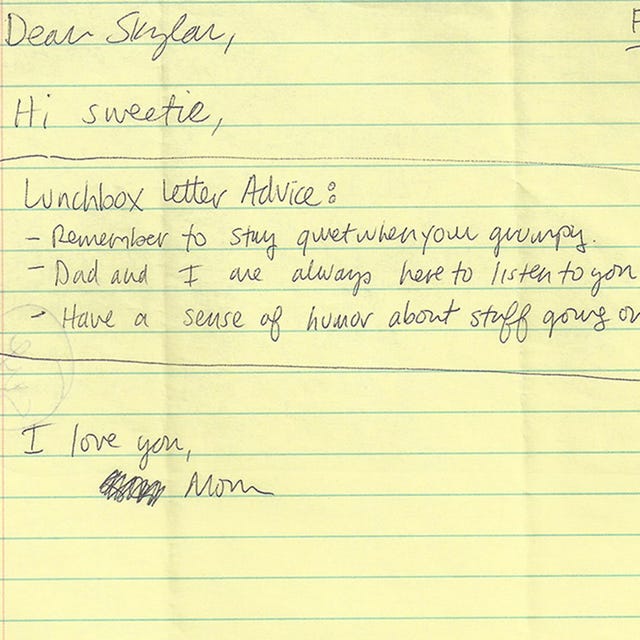 Dear Skylar,
Hi sweetie,
Lunchbox Letter Advice:
- Remember to stay quiet when your grumpy.
- Dad and I are always here to listen to you
- Have a sense of humor about stuff going on
I love you,
Mom